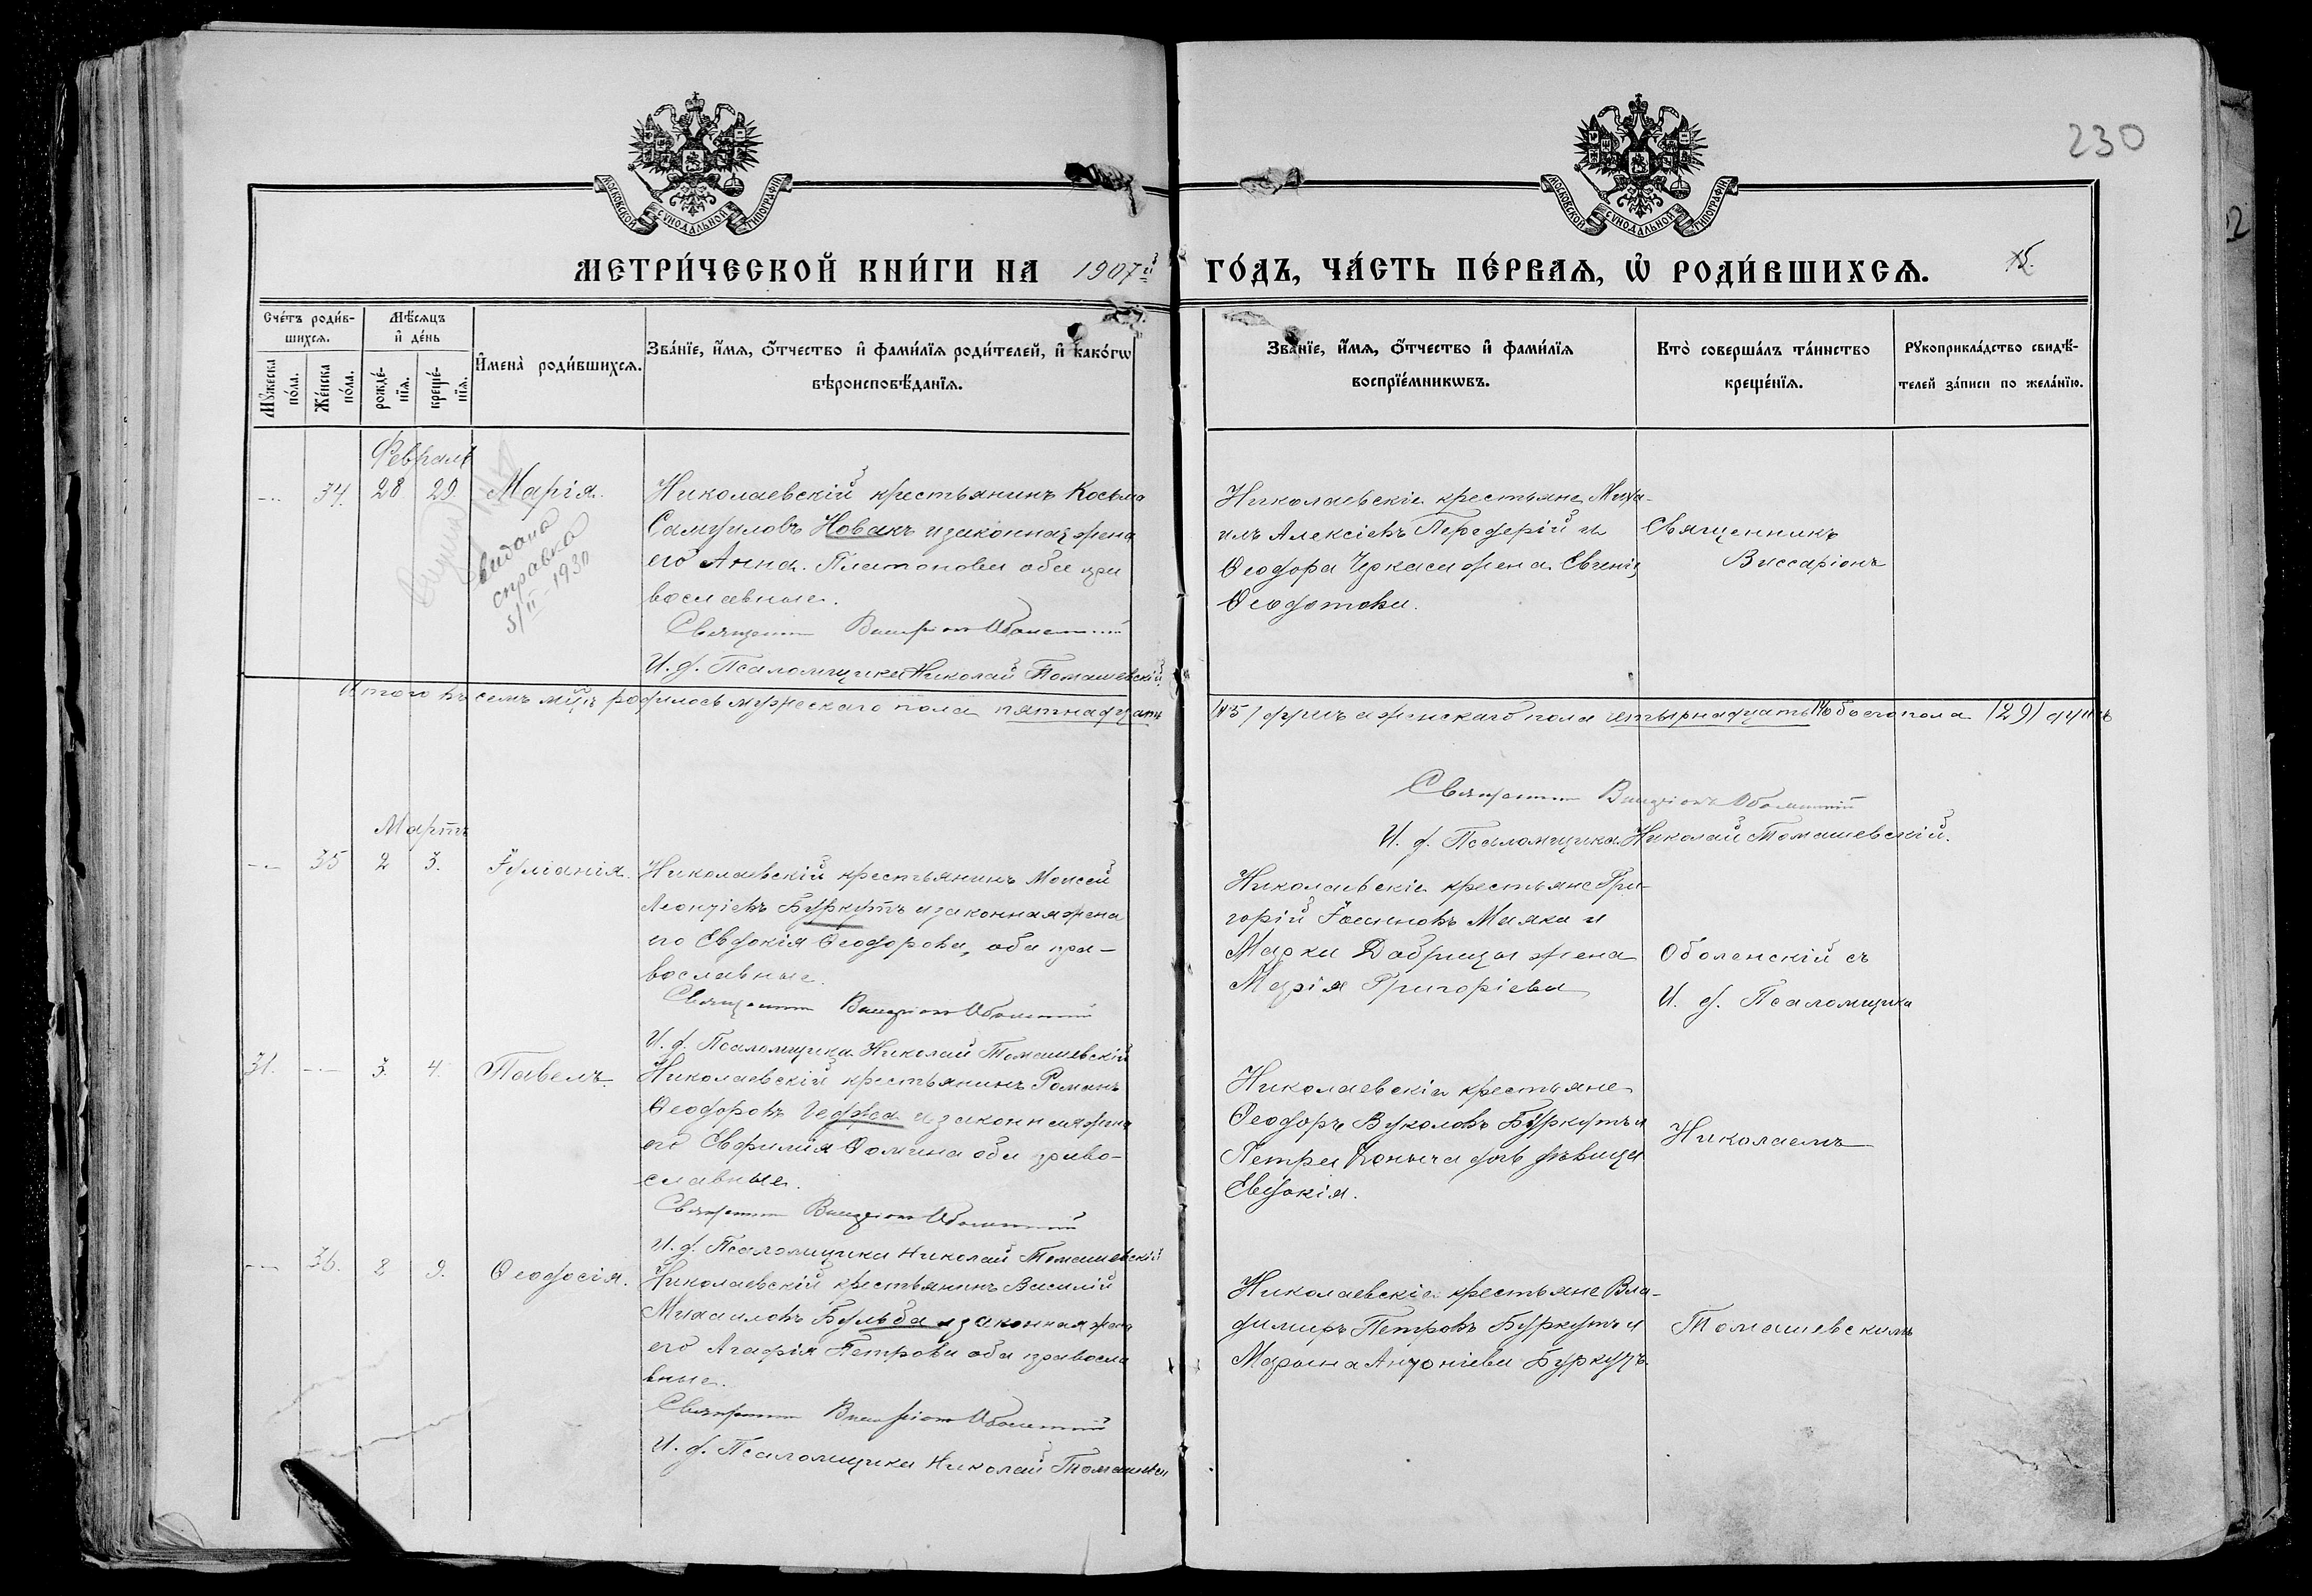 230
МОСКОВСКОЙ СУНОДАЛЬНОЙ ТИПОГРАФІИ
МОСКОВСКОЙ СУНОДАЛЬНОЙ ТИПОГРАФІИ
МЕТРИ́ЧЕСКОЙ КНИ́ГИ НА 1907й
ГО́ДЪ, ЧА́СТЬ ПЕ́РВАѦ, Ѡ҆ РОДИ́ВШИХСѦ.
15.
Сче́тъ роди́в-
шихсѧ.
Мꙋ́жеска по́ла.
Же́нска по́ла.
Мѣ́сѧцъ
и҆ де́нь
рожде́-
нїѧ.
креще́-
нїѧ.
И҆мена̀ роди́вшихсѧ.
Зва́нїе, и҆́мѧ, ѻ҆́тчество и҆ фами́лїѧ роди́телей, и҆ како́гѡ
вѣроисповѣ́данїѧ.
Зва́нїе, и҆́мѧ, ѻ҆́тчество и҆ фами́лїѧ
воспрїе́мникѡвъ.
Кто̀ соверша́лъ та́инство
креще́нїѧ.
Рꙋкоприкла́дство свидѣ́-
телей за́писи по жела́нїю.
Февраль
- 34. 28 29. Марія.
видана
справка
5/II-1930
Николаевскій крестьянинъ Косьма
Самуиловъ Новакъ и законная жена
его Анна Платонова оба пра
вославные.
Священник Виссаріон Оболенскій
И. д. Псаломщика Николай Томашевскій
Николаевскіе крестьяне Миха-
илъ Алексіевъ Передерій и
Ѳеодора Черкаса жена Евгенія
Ѳеодотова.
Священникъ
Виссаріонъ
Итого въ семъ мцѣ родилось мужескаго пола пятнадцать
(15) душъ а женскаго пола четырнадцать обоего пола (29) душъ
Священник Виссаріонъ Оболенскій
И. д. Псаломщика Николай Томашевскій.
Мартъ
- 35 2 3. Іуліанія.
Николаевскій крестьянинъ Моисей
Леонтіевъ Буркутъ и законная жена
его Евдокія Ѳеодорова, оба пра-
вославные.
Священник Виссаріон Оболенскій
И. д. Псаломщика Николай Томашевскій
Николаевскіе крестьяне Гри-
горій Іоанновъ Маяка и
Марка Добрицы жена
Марія Григоріева
Оболенскій съ
И. д. Псаломщика
31. - 3. 4. Павелъ
Николаевскій крестьянинъ Романъ
Ѳеодоровъ и законная жена
его Евфимія Ѳомина оба право-
славные.
Священник Виссаріон Оболенскій
И. д. Псаломщика Николай Томашевскій
Николаевскіе крестьяне
Ѳеодоръ Вуколовъ Буркутъ и
Петра дочь дѣвица
Евдокія.
Николаемъ
- 36. 8 9. Ѳеодосія.
Николаевскій крестьянинъ Василій
Михаиловъ Бульба и законная жена
его Агафія Петрова оба правосла
вные.
Священник Виссаріон Оболенскій
И. д. Псаломщика Николай Томашевскій
Николаевскіе крестьяне Вла-
димиръ Петровъ Буркутъ и
Марина Антоніева Буркутъ.
Томашевскимъ